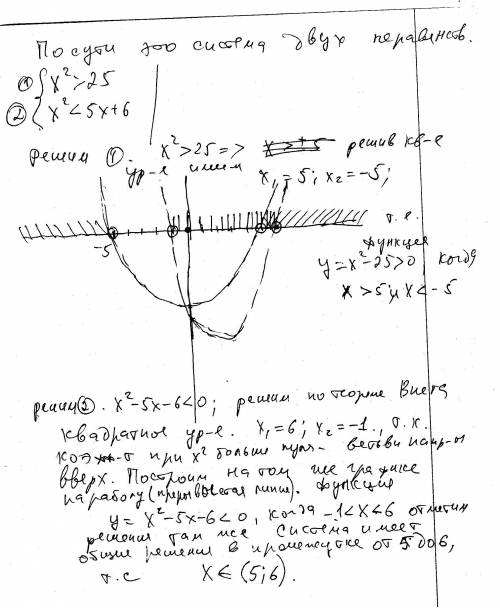 По сути это система двух неравенств.
① { x² > 25
② { x² < 5x+6
решим ①. x² > 25 => решив кв-е
ур-е имеем x₁ = 5; x₂ = -5;
-5
т.е.
функция
y = x² - 25 > 0 когда
x > 5 и x < -5
решим ②. x² - 5x - 6 < 0; решим по теореме Виета
квадратное ур-е. x₁ = 6; x₂ = -1., т.к.
коэ-т при x² больше нуля - ветви напр-ы
вверх. Построим на том же графике
параболу (прерывистая линия). Функция
y = x² - 5x - 6 < 0, когда -1 < x < 6 отметим
решения там же Система имеет
общие решения в промежутке от 5 до 6,
т.е x ∈ (5; 6).